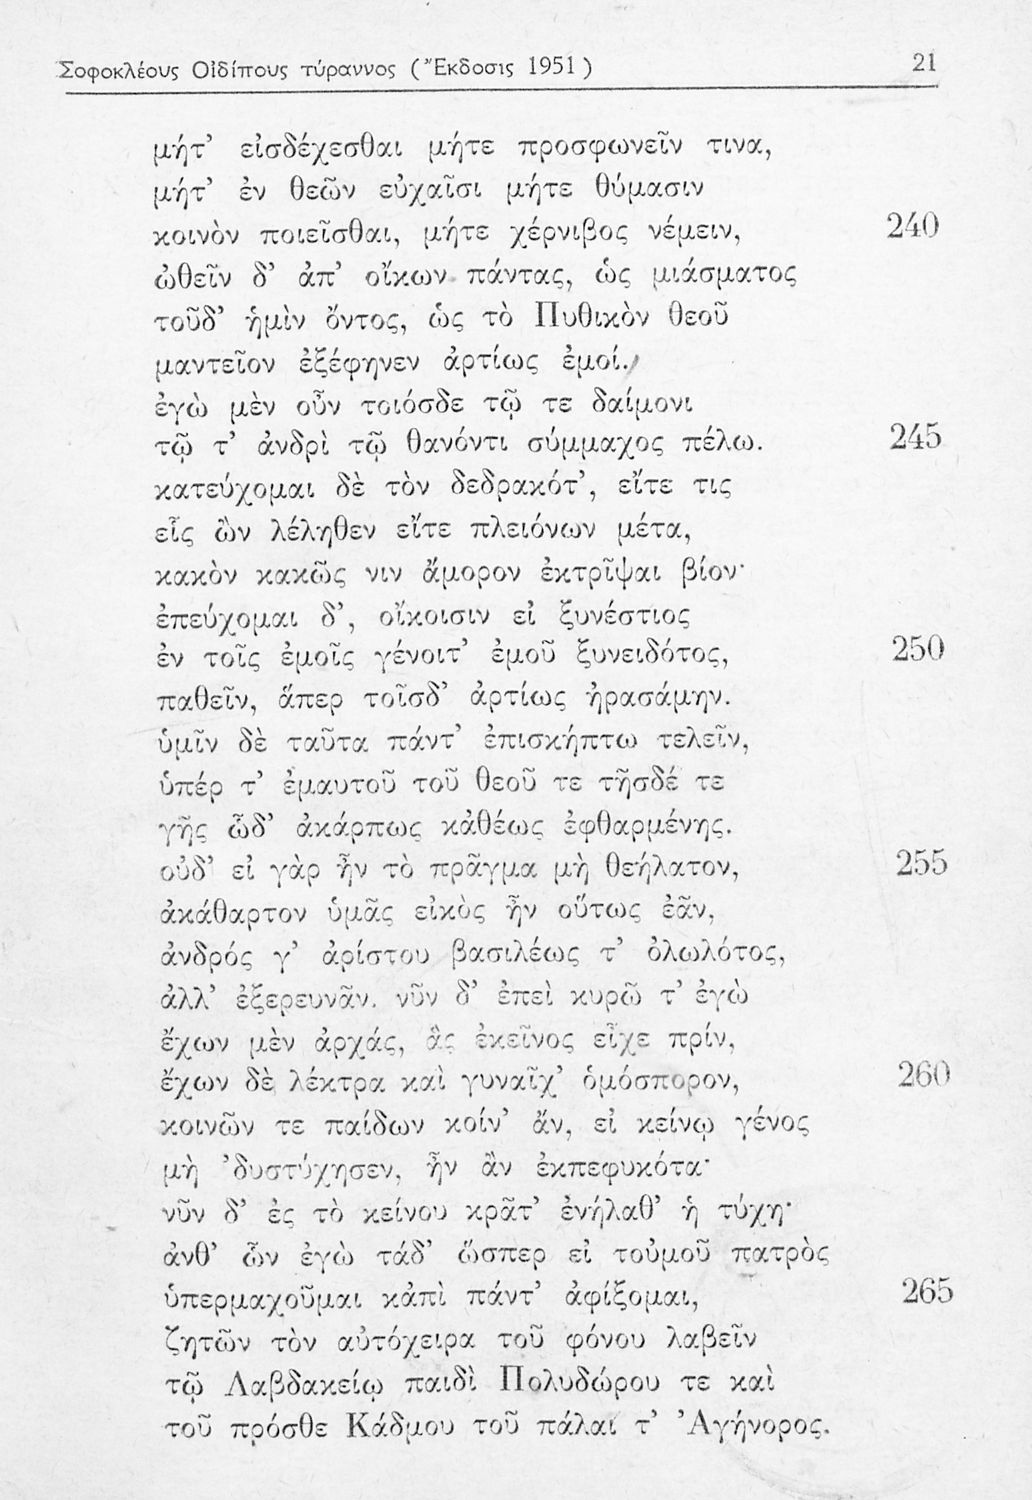 Σοφοκλέους Οἰδίπους τύραννος (Ἔκδοσις 1951) 21
μήτ’ εἰσδέχεσθαι μήτε προσφωνεῖν τινα,
μήτ’ ἐν θεῶν εὐχαῖσι μήτε θύμασιν
κοινὸν ποιεῖσθαι, μήτε χέρνιβος νέμειν, 240
ὠθεῖν δ’ ἀπ’ οἴκων πάντας, ὡς μιάσματος
τοῦδ’ ἡμὶν ὄντος, ὡς τὸ Πυθικὸν θεοῦ
μαντεῖον ἐξέφηνεν ἀρτίως ἐμοί.
ἐγὼ μὲν οὖν τοιόσδε τῷ τε δαίμονι
τῷ τ’ ἀνδρὶ τῷ θανόντι σύμμαχος πέλω. 245
κατεύχομαι δὲ τὸν δεδρακότ’, εἴτε τις
εἷς ὢν λέληθεν εἴτε πλειόνων μέτα,
κακὸν κακῶς νιν ἄμορον ἐκτρῖψαι βίον·
ἐπεύχομαι δ’, οἴκοισιν εἰ ξυνέστιος
ἐν τοῖς ἐμοῖς γένοιτ’ ἐμοῦ ξυνειδότος, 250
παθεῖν, ἅπερ τοῖσδ’ ἀρτίως ἠρασάμην.
ὑμῖν δὲ ταῦτα πάντ’ ἐπισκήπτω τελεῖν,
ὑπέρ τ’ ἐμαυτοῦ τοῦ θεοῦ τε τῆσδέ τε
γῆς ὧδ’ ἀκάρπως κἀθέως ἐφθαρμένης.
οὐδ’ εἰ γὰρ ἦν τὸ πρᾶγμα μὴ θεήλατον, 255
ἀκάθαρτον ὑμᾶς εἰκὸς ἦν οὕτως ἐᾶν,
ἀνδρός γ’ ἀρίστου βασιλέως τ’ ὀλωλότος,
ἀλλ’ ἐξερευνᾶν. νῦν δ’ ἐπεὶ κυρῶ τ’ ἐγὼ
ἔχων μὲν ἀρχάς, ἃς ἐκεῖνος εἶχε πρίν,
ἔχων δὲ λέκτρα καὶ γυναῖχ’ ὁμόσπορον, 260
κοινῶν τε παίδων κοίν’ ἄν, εἰ κείνῳ γένος
μὴ ’δυστύχησεν, ἦν ἂν ἐκπεφυκότα·
νῦν δ’ ἐς τὸ κείνου κρᾶτ’ ἐνήλαθ’ ἡ τύχη·
ἀνθ’ ὧν ἐγὼ τάδ’ ὥσπερ εἰ τοὐμοῦ πατρὸς
ὑπερμαχοῦμαι κἀπὶ πάντ’ ἀφίξομαι, 265
ζητῶν τὸν αὐτόχειρα τοῦ φόνου λαβεῖν
τῷ Λαβδακείῳ παιδὶ Πολυδώρου τε καὶ
τοῦ πρόσθε Κάδμου τοῦ πάλαι τ’ Ἀγήνορος.